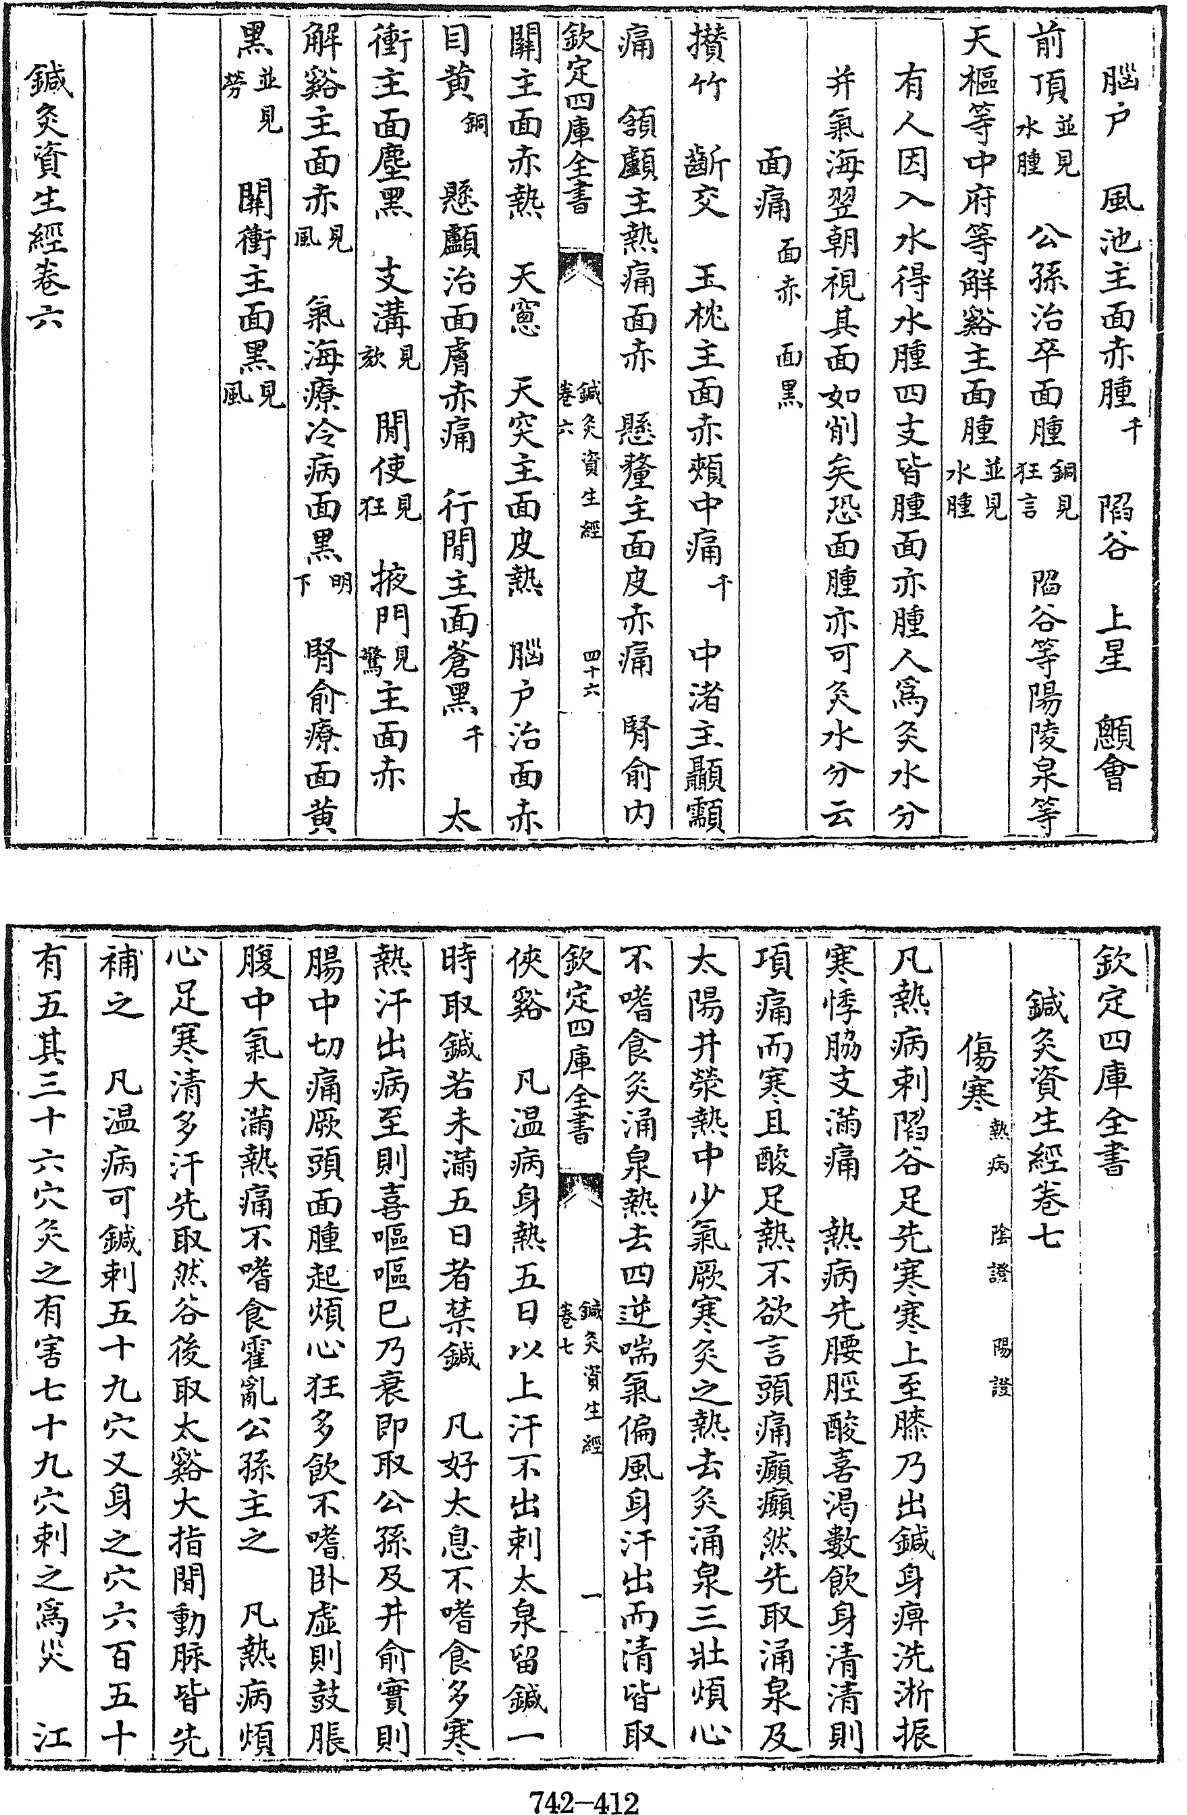 腦户　風池主面赤腫千　陷谷　上星　顖會
前頂並見水腫　公孫治卒面腫銅見狂言　陷谷等陽陵泉等
天樞等中府等解谿主面腫並見水腫
有人因入水得水腫四支皆腫面亦腫人爲灸水分
并氣海翌朝視其面如削矣恐面腫亦可灸水分云
面痛面赤　面黑
攅竹　齗交　玉枕主面赤頰中痛千　中渚主顳顬
痛　頷顱主熱痛面赤　懸釐主面皮赤痛　腎俞内
欽定四庫全書　鍼灸資生經卷六　四十六
關主面赤熱　天窻　天突主面皮熱　腦户治面赤
目黄銅　懸顱治面膚赤痛　行閒主面蒼黑千　太
衝主面塵黑　支溝見欬　閒使見狂　掖門見驚主面赤
解谿主面赤見風　氣海療冷病面黑明下　腎俞療面黄
黑並見勞　關衝主面黑見風
鍼灸資生經卷六
欽定四庫全書
鍼灸資生經卷七
傷寒熱病　陰證　陽證
凡熱病刺陷谷足先寒寒上至膝乃出鍼身痹洗淅振
寒悸脇支滿痛　熱病先腰脛酸喜渴數飲身清清則
項痛而寒且酸足熱不欲言頭痛癲癲然先取涌泉及
太陽井滎熱中少氣厥寒灸之熱去灸涌泉三壯煩心
不嗜食灸涌泉熱去四逆喘氣偏風身汗出而清皆取
欽定四庫全書　鍼灸資生經卷七　一
俠谿　凡温病身熱五日以上汗不出刺太泉留鍼一
時取鍼若未滿五日者禁鍼　凡好太息不嗜食多寒
熱汗出病至則喜嘔嘔已乃衰即取公孫及井俞實則
腸中切痛厥頭面腫起煩心狂多飲不嗜卧虚則鼓脹
腹中氣大滿熱痛不嗜食霍亂公孫主之　凡熱病煩
心足寒清多汗先取然谷後取太谿大指閒動脉皆先
補之　凡温病可鍼刺五十九穴又身之穴六百五十
有五其三十六穴灸之有害七十九穴刺之爲災　江
742-412